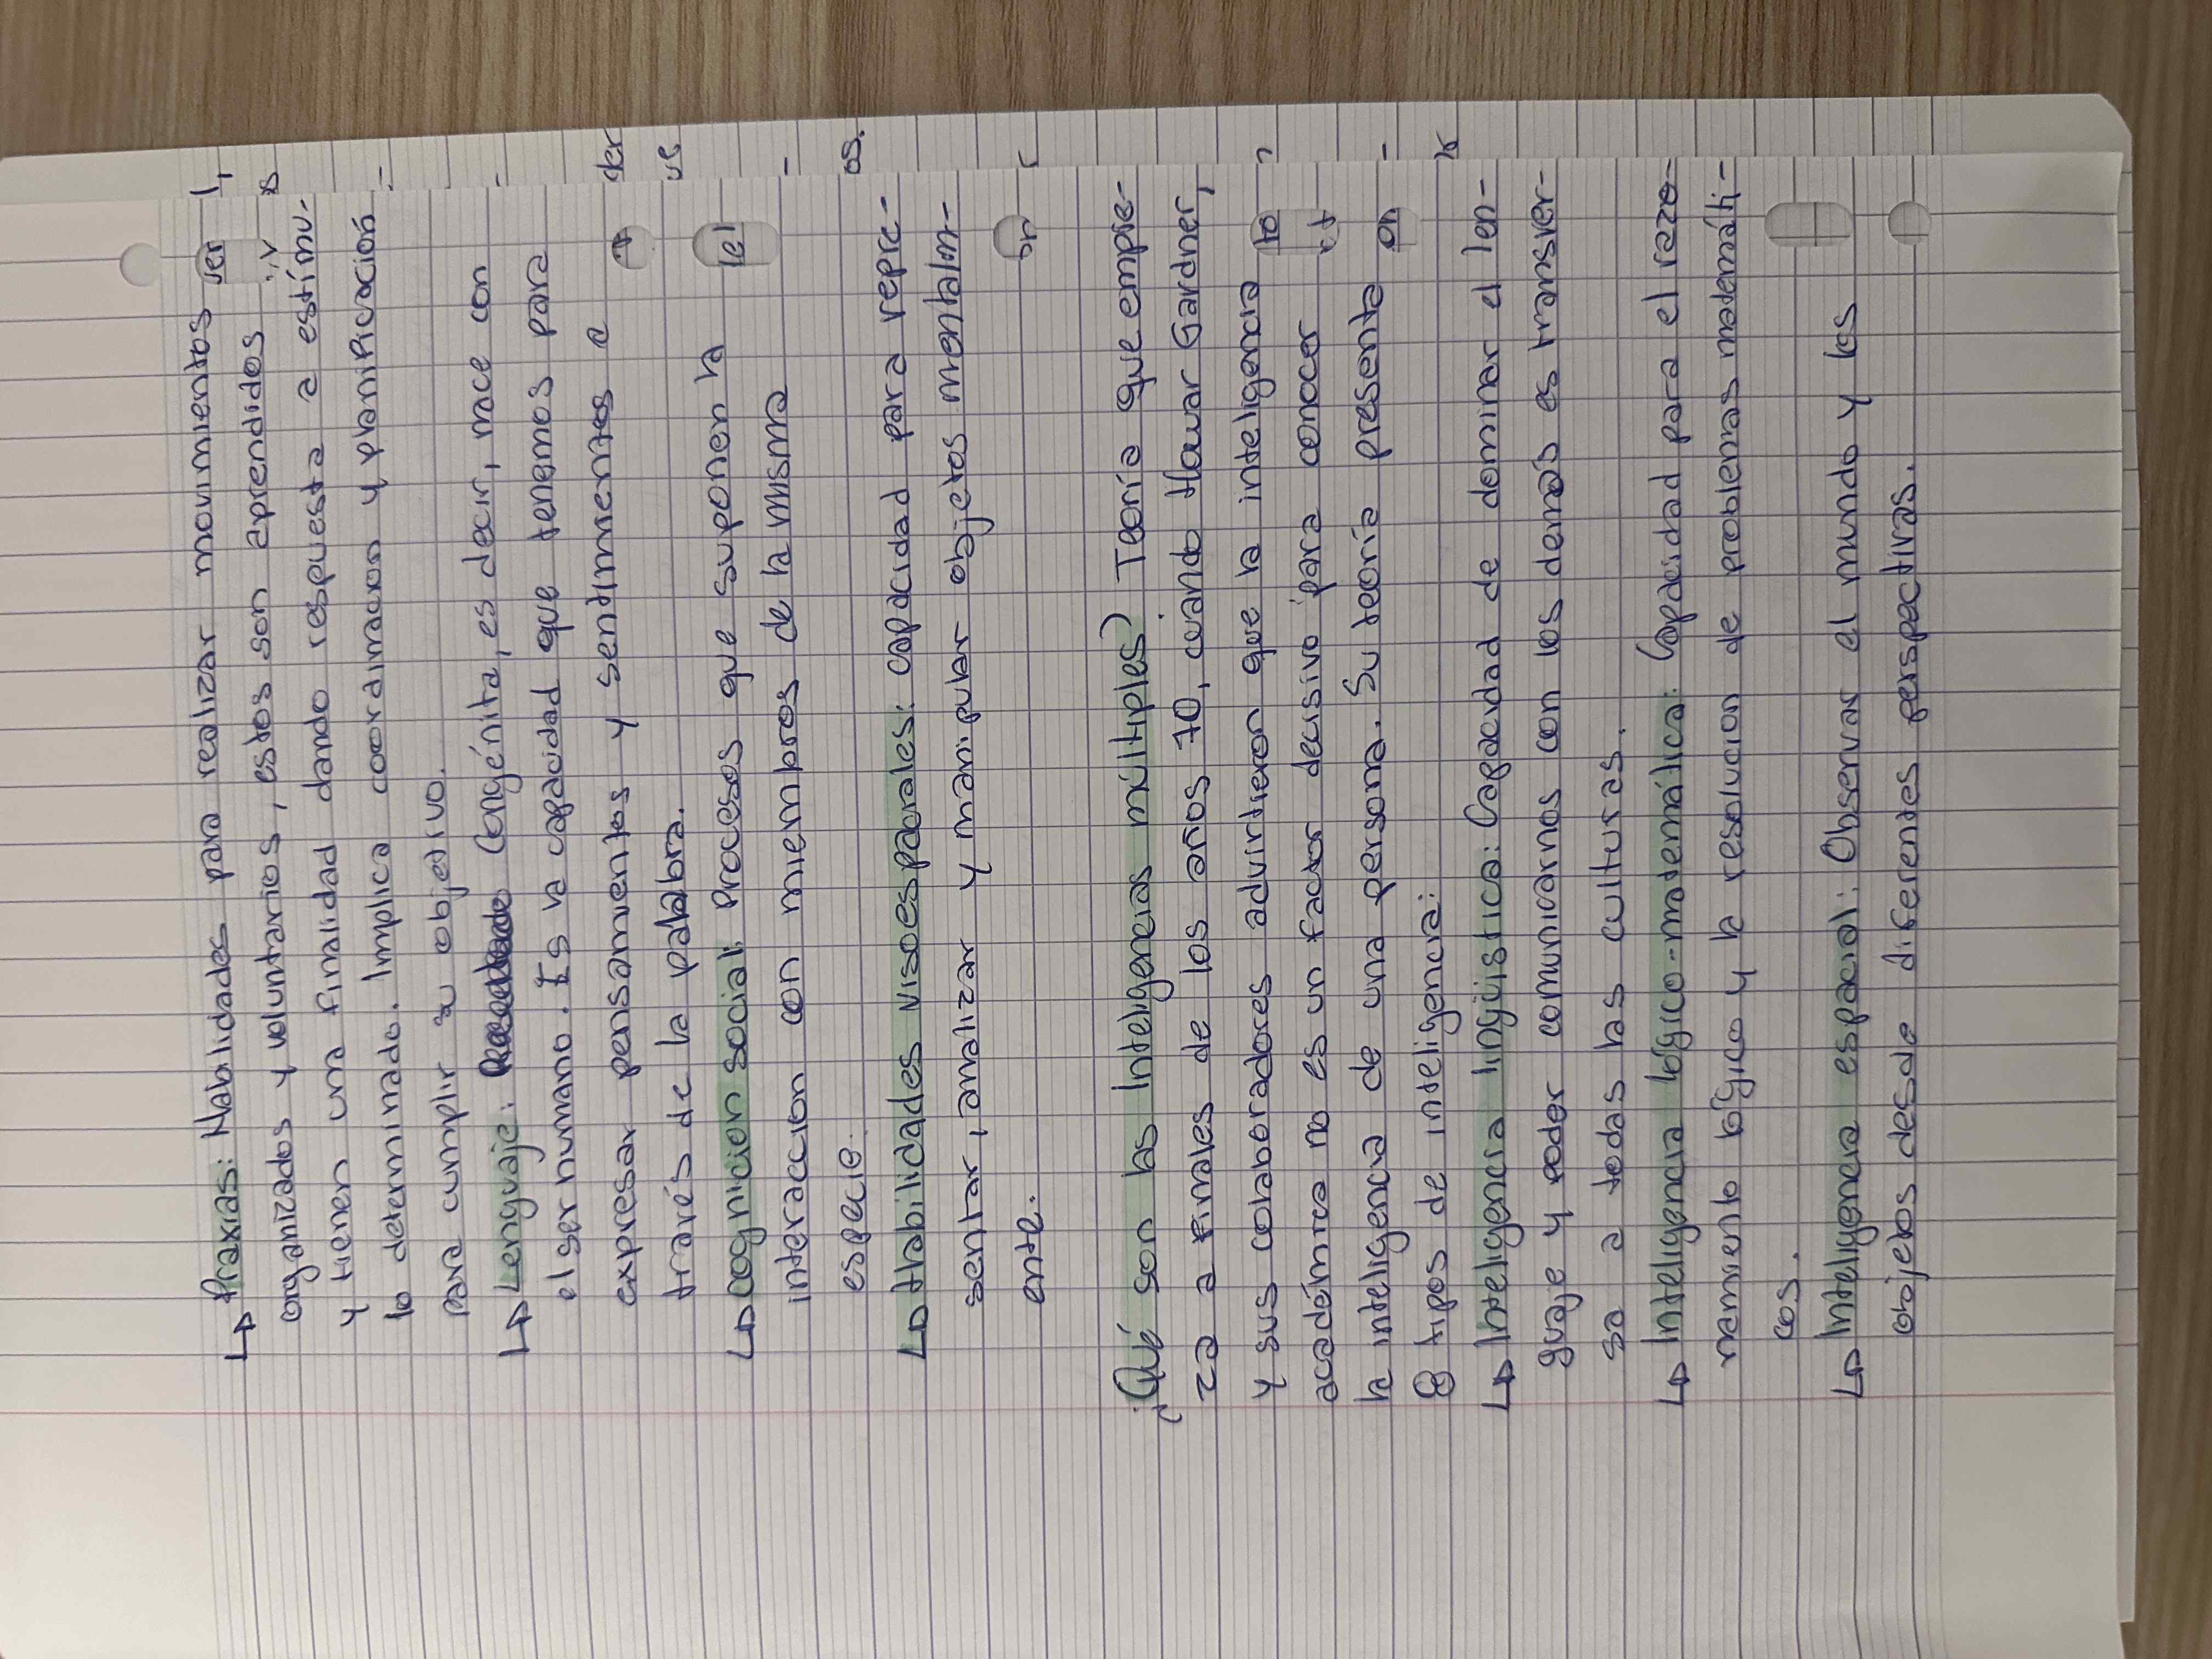 ↳ Praxias: Habilidades para realizar movimientos
organizados y voluntarios, estos son aprendidos
y tienen una finalidad dando respuesta a estímu-
lo determinado. Implica coordinacion y planificación
para cumplir su objetivo.
↳ Lenguaje: Congénita, es decir, nace con
el ser humano. Es la capacidad que tenemos para
expresar pensamientos y sentimientos a
través de la palabra.
↳ Cognicion social: Procesos que suponen la
interaccion con miembros de la misma
especie.
↳ Habilidades visoespaciales: capacidad para repre-
sentar, analizar y manipular objetos mentalm-
ente.
¿Qué son las Inteligencias múltiples? Teoría que empie-
za a finales de los años 70, cuando Howar Gardner,
y sus colaboradores advirtieron que la inteligencia
académica no es un factor decisivo para conocer
la inteligencia de una persona. Su teoría presenta
8 tipos de inteligencia:
↳ Inteligencia lingüística: Capacidad de dominar el len-
guaje y poder comunicarnos con los demás es transver-
sa a todas las culturas.
↳ Inteligencia lógico-matemática: Capacidad para el razo-
namiento lógico y la resolucion de problemas matemáti-
cos.
↳ Inteligencia espacial: Observar el mundo y los
objetos desde diferentes perspectivas.